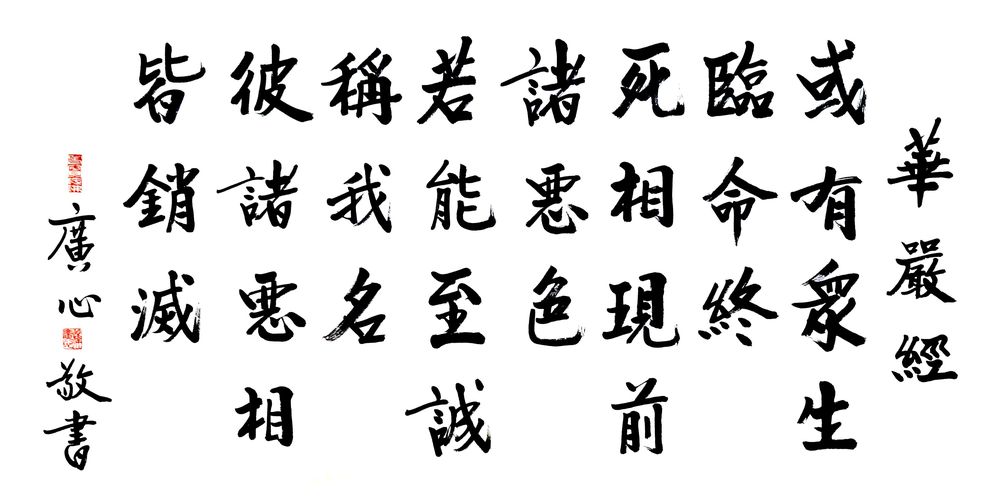 華嚴經
或有眾生
臨命終
死相現前
諸惡色
若能至誠
稱我名
彼諸惡相
皆銷滅
廣心敬書